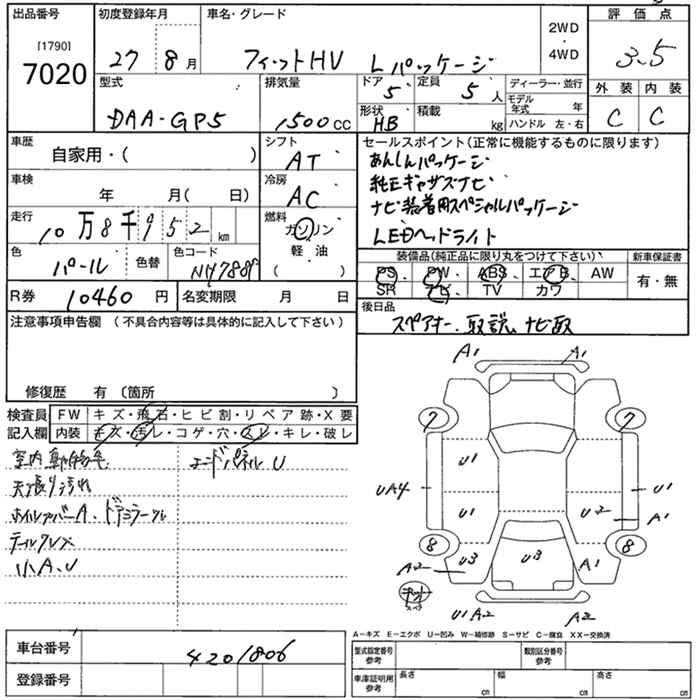 出品番号 初度登録年月 車名・グレード 2WD ・ 4WD 評価点
[1790]
7020 27 8月 フィットHV Lパッケージ 3.5
型式 排気量 ドア 5 定員 5人 ディーラー・並行 外装 内装
DAA-GP5 1500cc 形状 HB 積載 kg モデル年式 年 C C
ハンドル 左・右
車歴 自家用・( ) シフト AT セールスポイント(正常に機能するものに限ります)
あんしんパッケージ
車検 年 月( 日) 冷房 AC 純正ギャザズナビ
ナビ装着用スペシャルパッケージ
走行 10万8千952km 燃料 ガソリン LEDヘッドライト
軽油
( )
色 パール 色替 色コード NH788P 装備品(純正品に限り丸をつけて下さい) 新車保証書
PS・PW・ABS・エアB・AW 有・無
R券 10460円 名変期限 月 日 SR ナビ TV カワ
注意事項申告欄(不具合内容等は具体的に記入して下さい) 後日品
スペアキー、取説、ナビ取
修復歴 有(箇所 )
検査員 FW キズ・飛石・ヒビ割・リペア跡・X要
記入欄 内装 キズ・汚レ・コゲ・穴・スレ・キレ・破レ
エンドパネルU
天張り汚れ
小A、U
A1 A1
7 7
U1
UA4 U1
U1 U2 A1
8 8
A2 U3 U3 A1
U1 A2 A2
A−キズ E−エクボ U−凹み W−補修跡 S−サビ C−腐食 XX−交換済
車台番号 4201806 型式指定番号 参考 類別区分番号 参考
登録番号 車庫証明用 参考 長さ cm 幅 cm 高さ cm